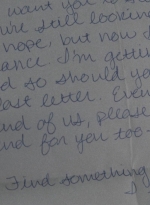 want you to
still looking
hope, but now I
chance I'm getting
so should you
last letter. Even
end of us, please
and for you too.
Find something
I